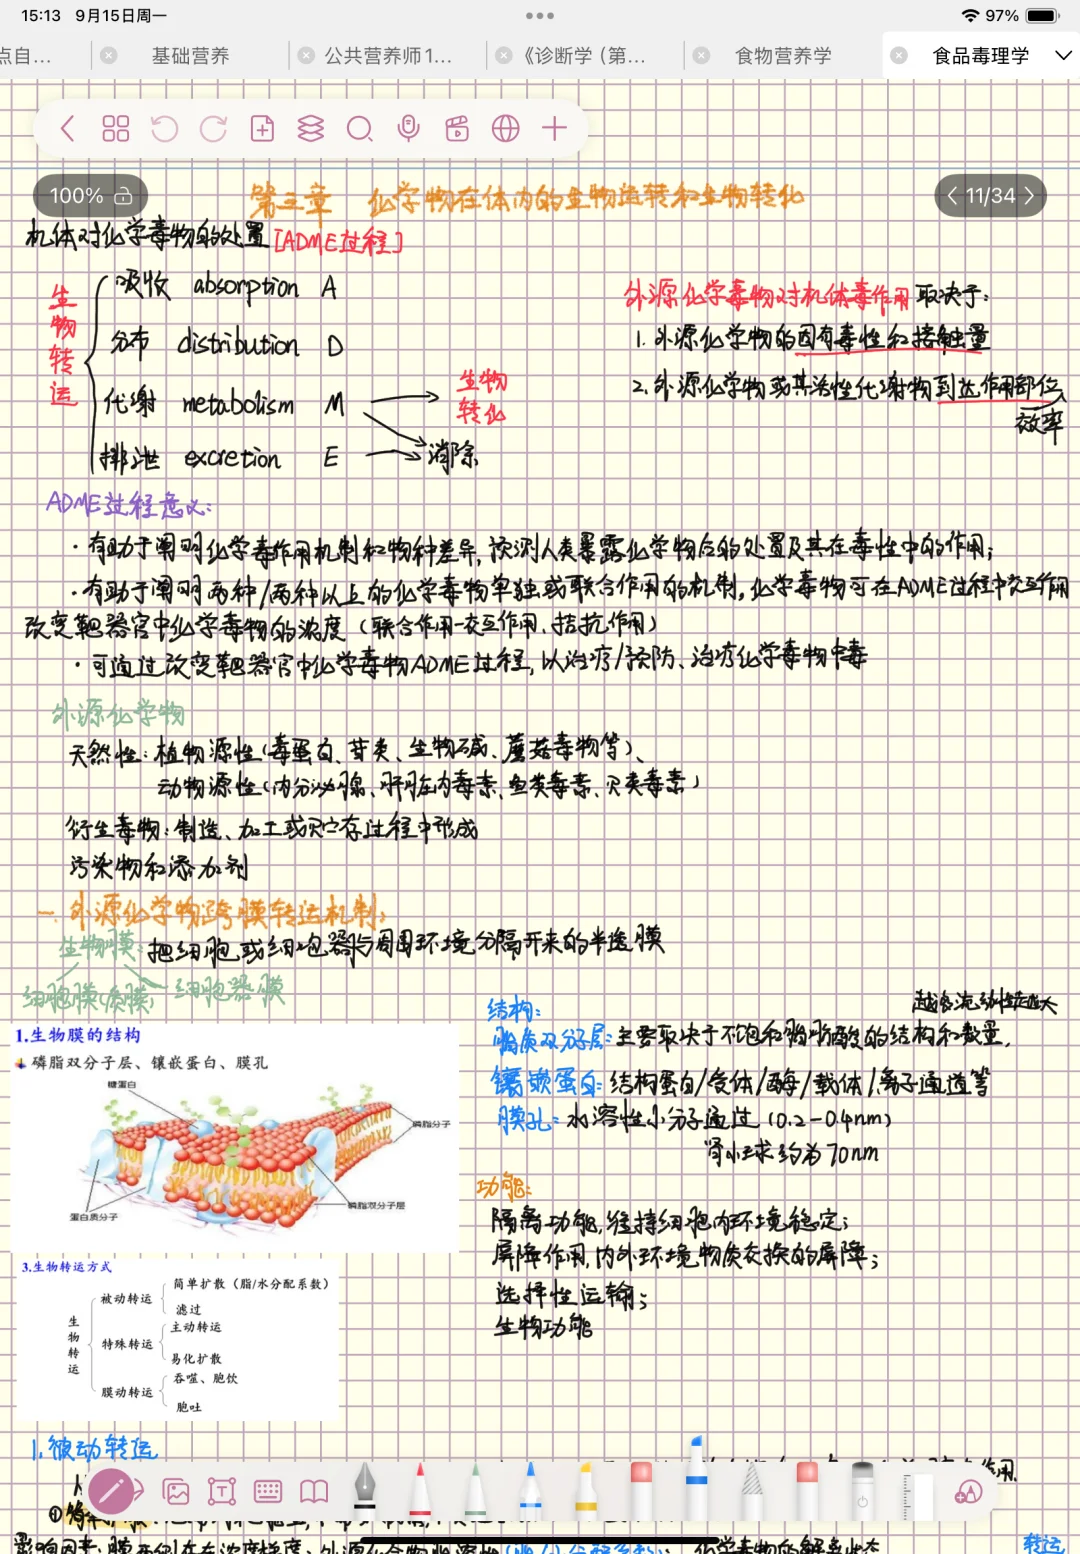 15:13 9月15日周一
97%
点自...
基础营养
公共营养师1...
《诊断学（第...
食物营养学
食品毒理学
100%
11/34
第三章 化学物在体内的生物运转和生物转化
机体对化学毒物的处置[ADME过程]
生物转运
吸收 absorption A
分布 distribution D
代谢 metabolism M
生物转化
排泄 excretion E
消除
外源化学毒物对机体毒作用取决于:
1. 外源化学物的固有毒性和接触量
2. 外源化学物或其活性代谢物到达作用部位
效率
ADME过程意义:
·有助于阐明化学毒作用机制和物种差异,预测人类暴露化学物后的处置及其在毒性中的作用;
·有助于阐明两种/两种以上的化学毒物单独或联合作用的机制,化学毒物可在ADME过程中交互作用
改变靶器官中化学毒物的浓度(联合作用-交互作用、拮抗作用)
·可通过改变靶器官中化学毒物ADME过程,以治疗/预防、治疗化学毒物中毒
外源化学物
天然性:植物源性(毒蛋白、苷类、生物碱、蘑菇毒物等)、
动物源性(内分泌腺、肝脏内毒素、鱼类毒素、贝类毒素)
衍生毒物:制造、加工或贮存过程中形成
污染物和添加剂
一.外源化学物跨膜转运机制:
生物膜:把细胞或细胞器与周围环境分隔开来的半透膜
细胞膜(质膜) 细胞器膜
1.生物膜的结构
磷脂双分子层、镶嵌蛋白、膜孔
糖蛋白
磷脂分子
蛋白质分子
磷脂双分子层
结构:
越多流动性越大
脂质双分子层:主要取决于不饱和脂肪酸的结构和数量.
镶嵌蛋白:结构蛋白/受体/酶/载体/离子通道等
膜孔:水溶性小分子通过(0.2-0.4nm)
肾小球约为70nm
功能:
隔离功能,维持细胞内环境稳定;
屏障作用,内外环境物质交换的屏障;
选择性运输;
生物功能
3.生物转运方式
生物转运
被动转运
简单扩散（脂/水分配系数）
滤过
特殊转运
主动转运
易化扩散
膜动转运
吞噬、胞饮
胞吐
1.被动转运
作用.
转运